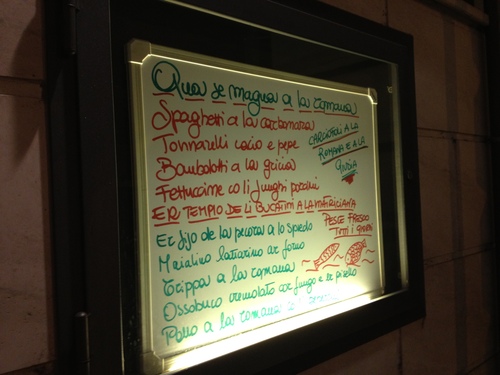 Qua se magna a la romana
Spaghetti a la carbonara
Tonnarelli cacio e pepe
Bombolotti a la gricia
Fettuccine co li funghi porcini
ER TEMPIO DE LI BUCATINI A LA MATRICIANA
CARCIOFOLI A LA
ROMANA E A LA
GIUDIA
PESCE FRESCO
TUTTI I GIORNI
Er fijo de la pecora a lo spiedo
Maialino lattarino ar forno
Trippa a la romana
Ossobuco cremolato ar fungo e er pisello
Pollo a la romana co i